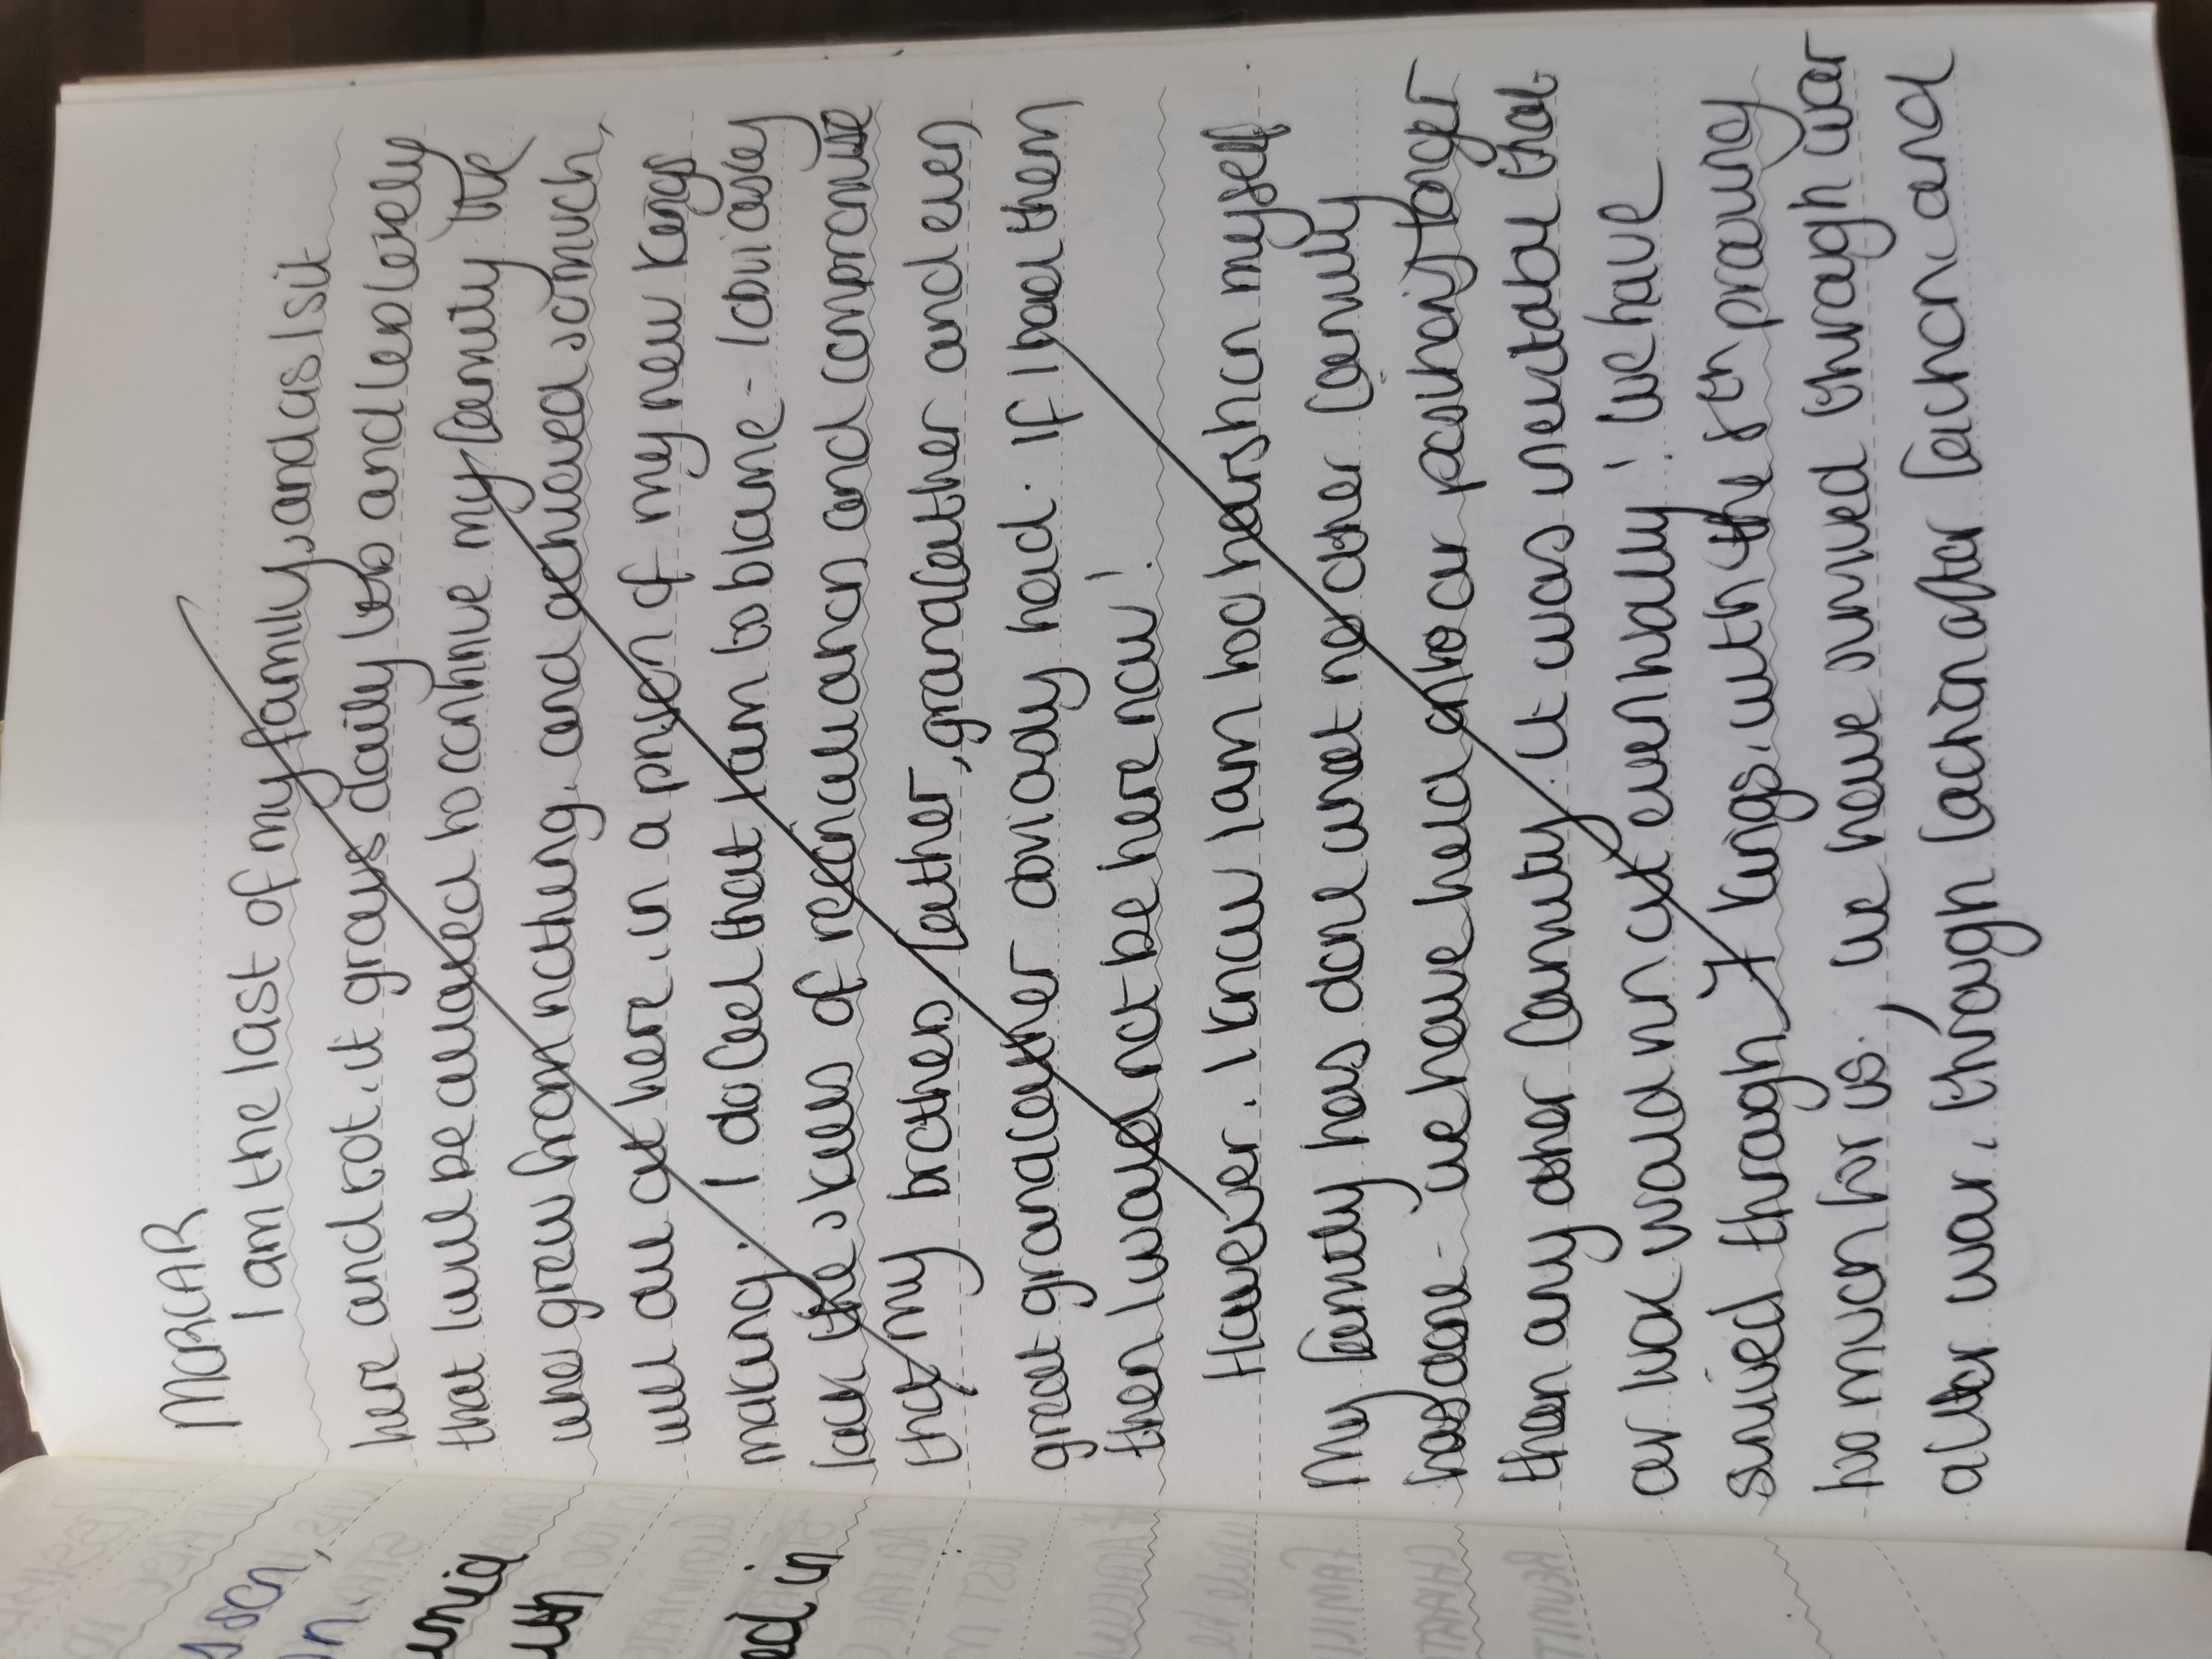 MORCAR
I am the last of my family, and as I sit
here and rot, it grows daily less and less likely
that I will be allowed to continue my family line
who grew from nothing, and achieved so much,
will die out here, in a prison of my new kings
making. I do feel that I am to blame - I obviously
lack the skills of reconciliation and compromise
that my brothers, father, grandfather and even
great grandfather obviously held. If I had them
then I would not be here now!
However, I know I am too harsh on myself
My family has done what no other family
has done - we have held onto our position longer
than any other family. It was inevitable that
our luck would run out eventually! We have
survived through 7 kings, with the 8th proving
too much for us, we have survived through war
after war, through faction after faction, and
son,
ed in